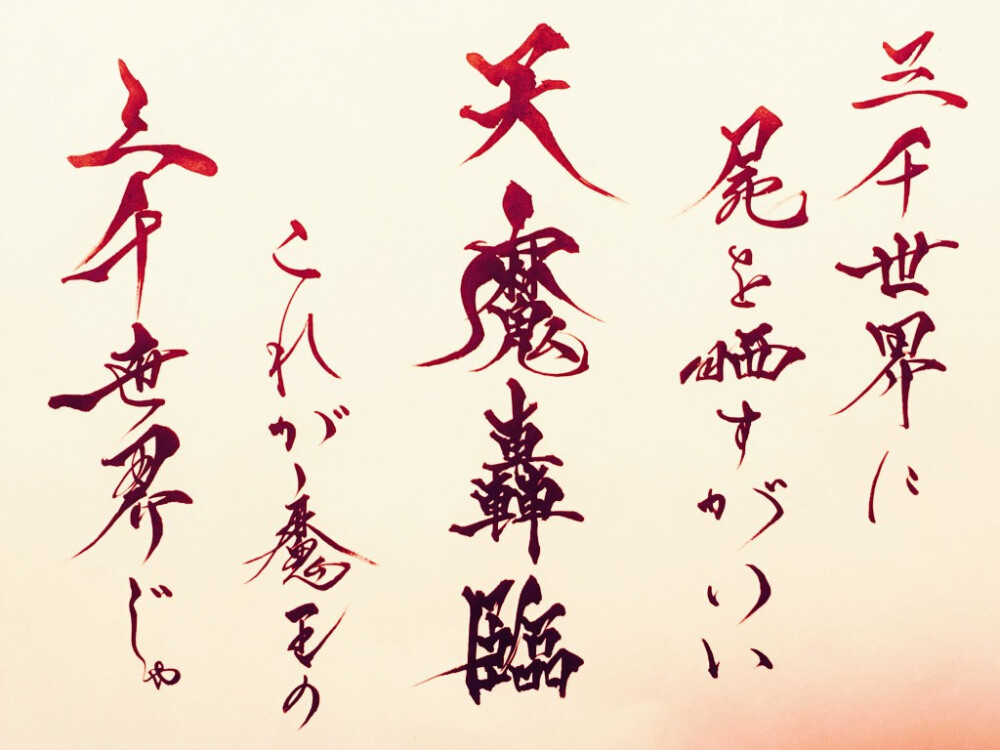 三千世界に
屍を晒すがいい
天魔轟臨
これが魔王の
三千世界じゃ